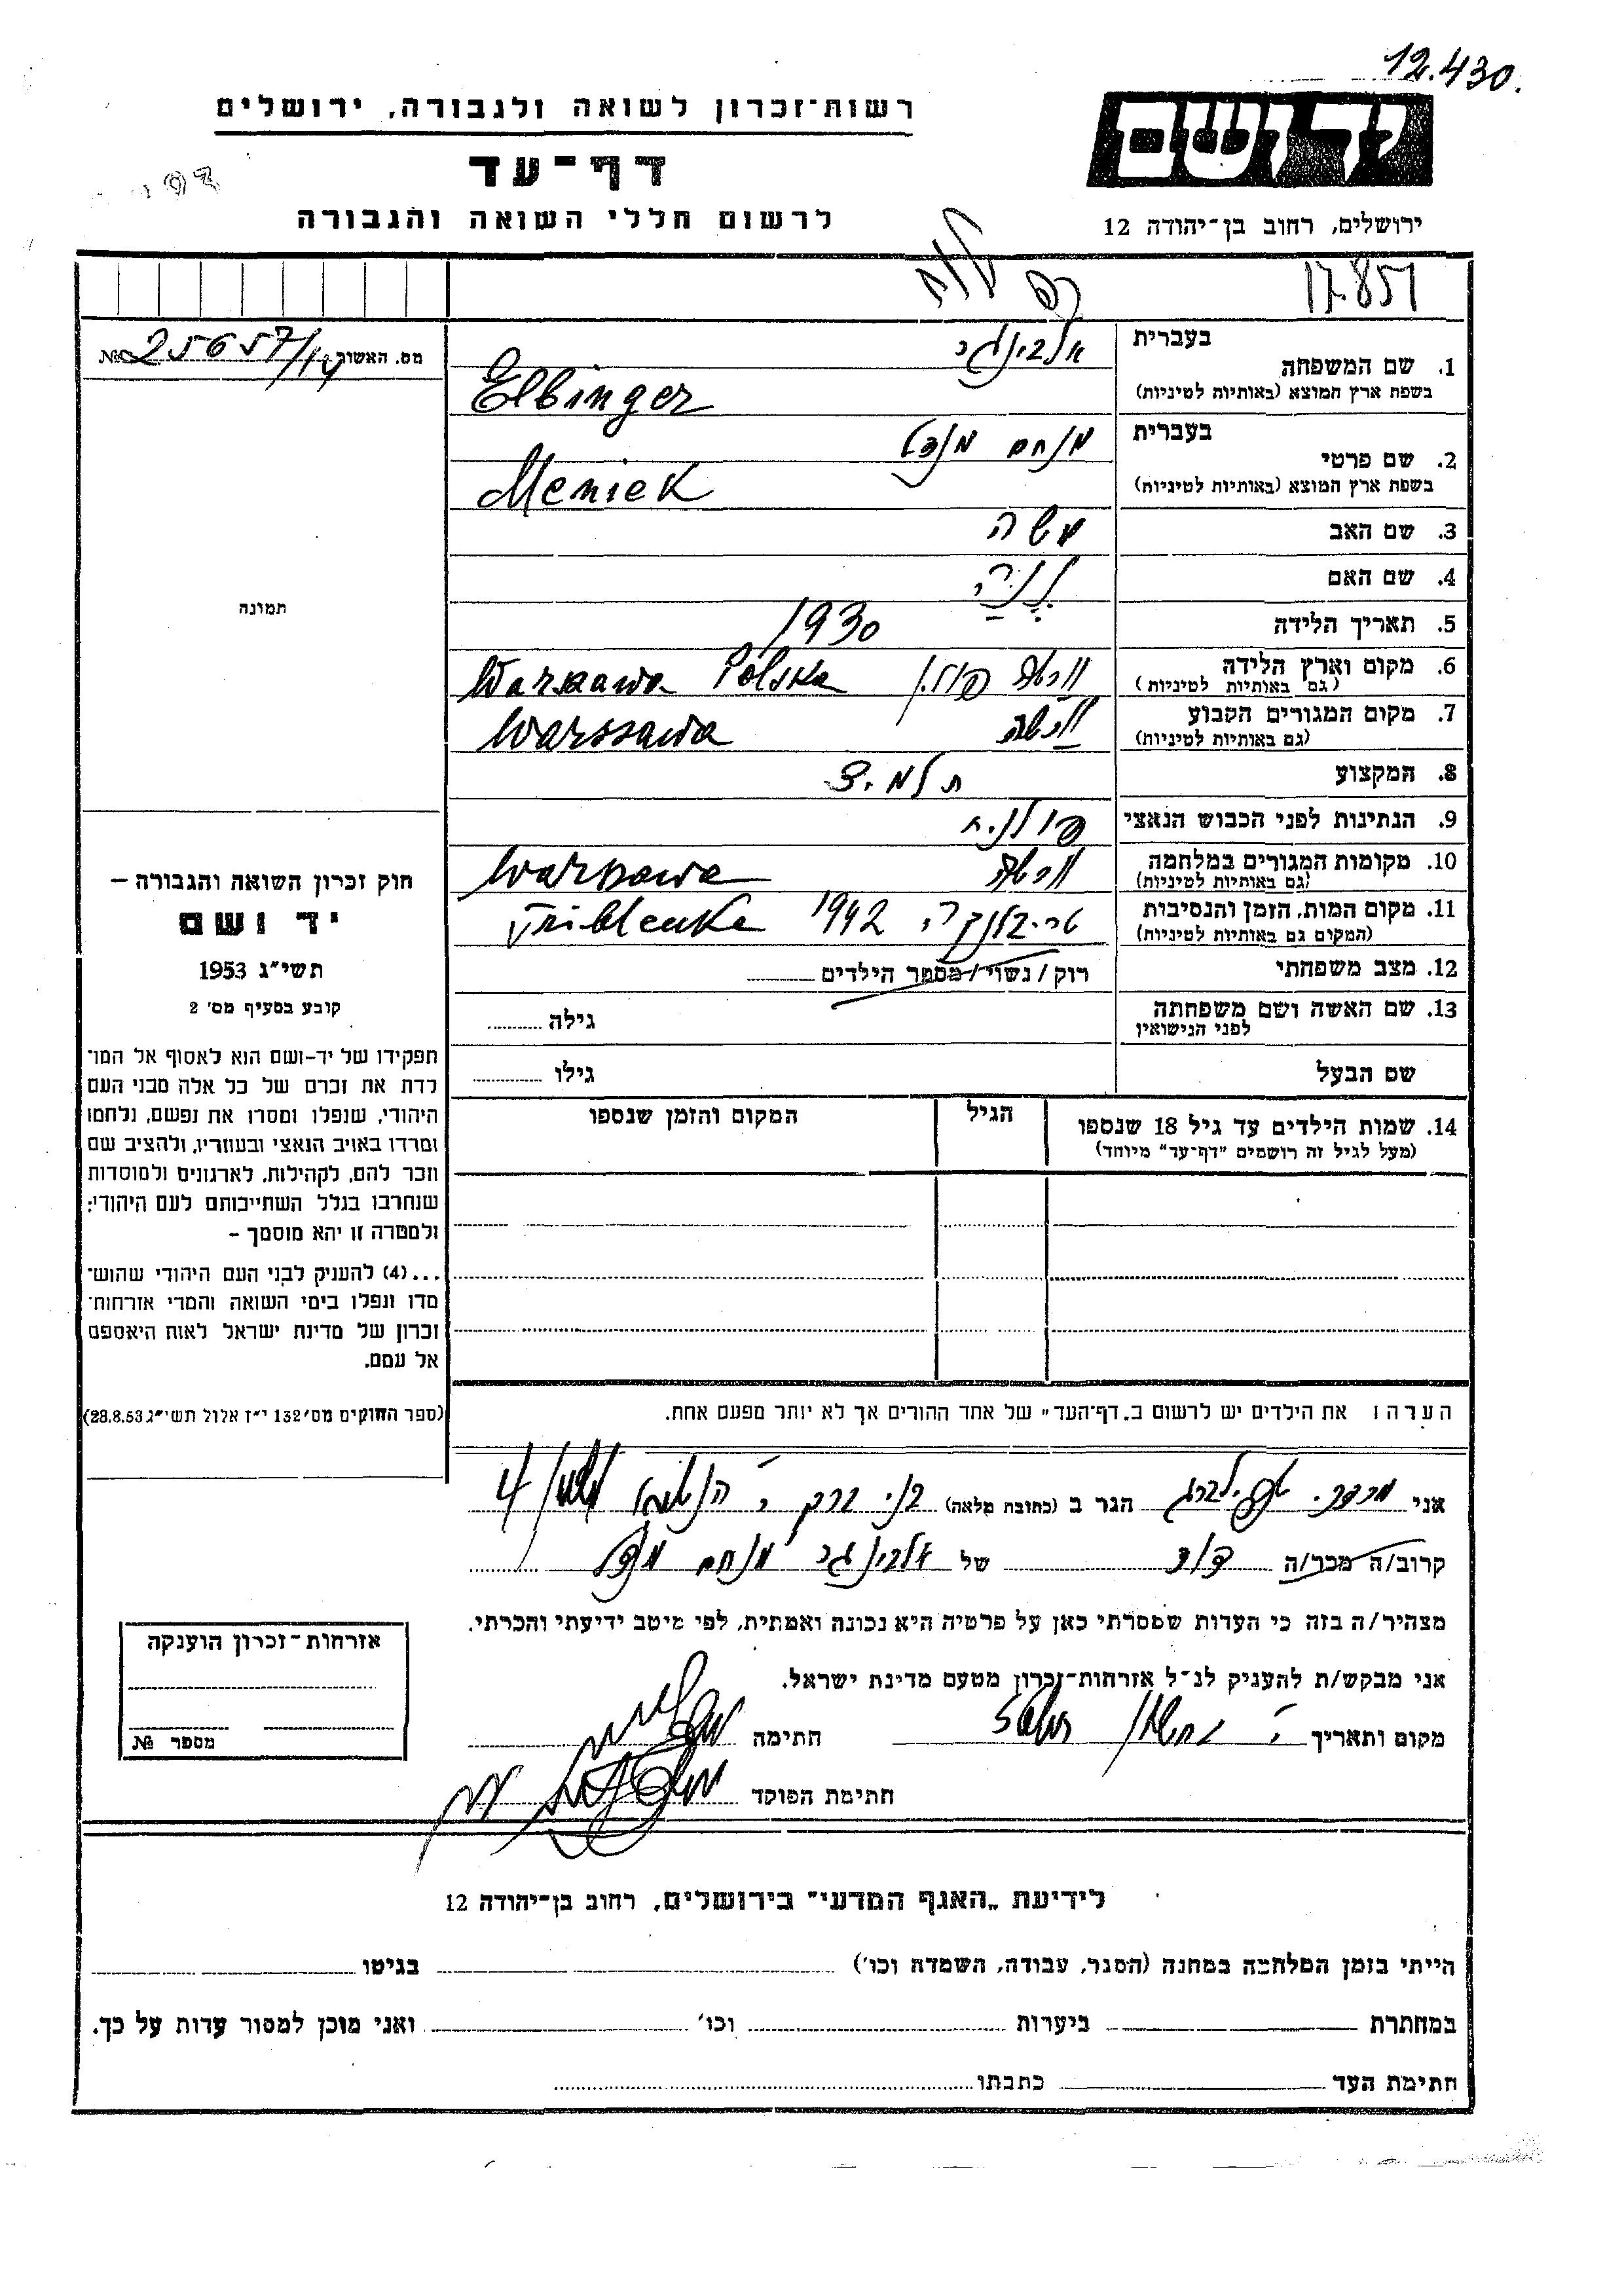 12.430.
רשות־זכרון לשואה ולגבורה, ירושלים
יד ושם
דף־עד
לרשום חללי השואה והגבורה
ירושלים, רחוב בן־יהודה 12
17851
מס. האשור № 25657/14
1. שם המשפחה
בעברית אלבינגר
בשפת ארץ המוצא (באותיות לטיניות) Elbinger
2. שם פרטי
בעברית מנחם מנדל
בשפת ארץ המוצא (באותיות לטיניות) Meniek
3. שם האב משה
4. שם האם
5. תאריך הלידה 1930
6. מקום וארץ הלידה ורשה פולין Warszawa Polska
(גם באותיות לטיניות)
7. מקום המגורים הקבוע ורשה Warssawa
(גם באותיות לטיניות)
8. המקצוע תלמיד
9. הנתינות לפני הכבוש הנאצי פולנית
10. מקומות המגורים במלחמה ורשה Warszawa
(גם באותיות לטיניות)
11. מקום המות, הזמן והנסיבות טריבלנקה 1942 Triblenka
(המקום גם באותיות לטיניות)
12. מצב משפחתי רוק / נשוי / מספר הילדים
13. שם האשה ושם משפחתה גילה
לפני הנישואין
שם הבעל גילו
14. שמות הילדים עד גיל 18 שנספו הגיל המקום והזמן שנספו
(מעל לגיל זה רושמים "דף־עד" מיוחד)
תמונה
חוק זכרון השואה והגבורה —
יד ושם
תשי"ג 1953
קובע בסעיף מס' 2
תפקידו של יד-ושם הוא לאסוף אל המו־
לדת את זכרם של כל אלה מבני העם
היהודי, שנפלו ומסרו את נפשם, נלחמו
ומרדו באויב הנאצי ובעוזריו, ולהציב שם
וזכר להם, לקהילות, לארגונים ולמוסדות
שנחרבו בגלל השתייכותם לעם היהודי;
ולמטרה זו יהא מוסמך —
...(4) להעניק לבני העם היהודי שהוש־
מדו ונפלו בימי השואה והמרי אזרחות־
זכרון של מדינת ישראל לאות היאספם
אל עמם.
(ספר החוקים מס' 132 י"ז אלול תשי"ג 28.8.53)
הערה: את הילדים יש לרשום ב„דף־העד" של אחד ההורים אך לא יותר מפעם אחת.
אני הגר ב (כתובת מלאה) בני ברק 4
קרוב/ה מכר/ה דוד של אלבינגר מנחם מנדל
מצהיר/ה בזה כי העדות שמסרתי כאן על פרטיה היא נכונה ואמתית, לפי מיטב ידיעתי והכרתי.
אני מבקש/ת להעניק לנ"ל אזרחות־זכרון מטעם מדינת ישראל.
מקום ותאריך חתימה
חתימת הפוקד
אזרחות־זכרון הוענקה
מספר №
לידיעת „האגף המדעי" בירושלים, רחוב בן־יהודה 12
הייתי בזמן המלחמה במחנה (הסגר, עבודה, השמדה וכו') בגיטו
במחתרת ביערות וכו' ואני מוכן למסור עדות על כך.
חתימת העד כתבתו